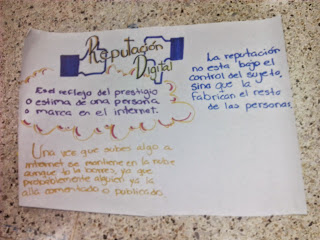 Reputación
Digital
Es el reflejo del prestigio
o estima de una persona
o marca en el internet.
La reputación
no esta bajo el
control del sujeto,
sino que la
fabrican el resto
de las personas.
Una vez que subes algo a
internet se mantiene en la nube
aunque tu lo borres, ya que
probablemente alguien ya lo
alla comentado o publicado.